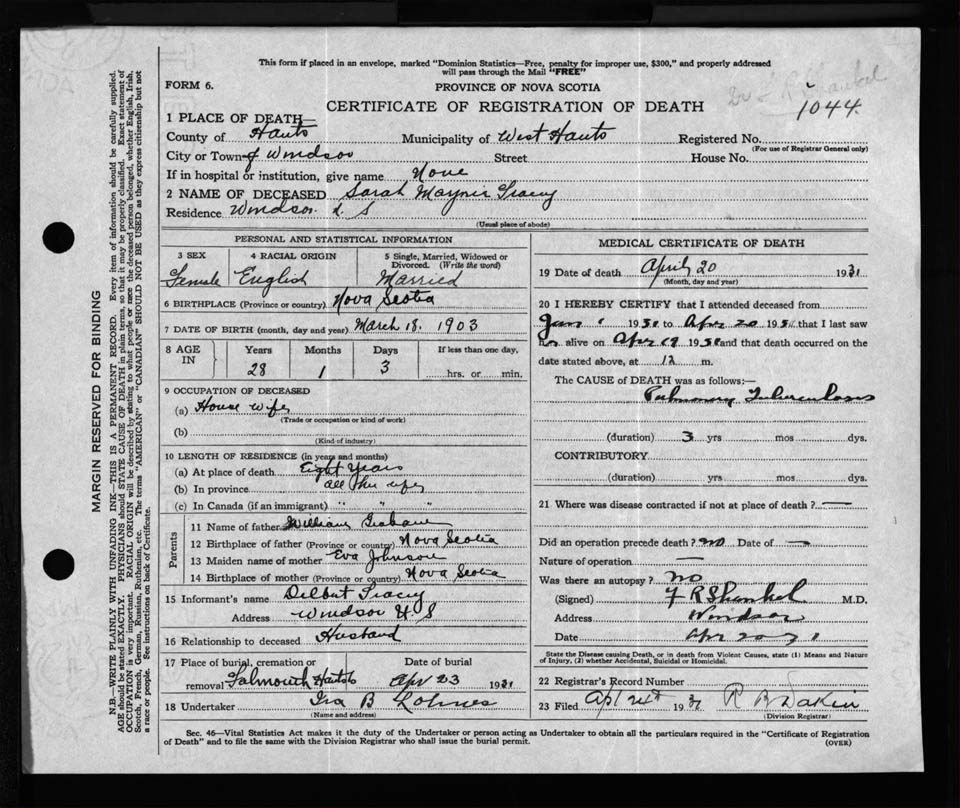 This form if placed in an envelope, marked "Dominion Statistics—Free, penalty for improper use, $300," and properly addressed
will pass through the Mail "FREE"
FORM 6.
PROVINCE OF NOVA SCOTIA
CERTIFICATE OF REGISTRATION OF DEATH
1044
1 PLACE OF DEATH—
County of Hants Municipality of West Hants Registered No.
(For use of Registrar General only)
City or Town of Windsor Street House No.
If in hospital or institution, give name None
2 NAME OF DECEASED Sarah Tracey
Residence Windsor N. S
(Usual place of abode)
PERSONAL AND STATISTICAL INFORMATION
3 SEX 4 RACIAL ORIGIN 5 Single, Married, Widowed or
Divorced. (Write the word)
Female English Married
6 BIRTHPLACE (Province or country) Nova Scotia
7 DATE OF BIRTH (month, day and year) March 18. 1903
8 AGE IN Years Months Days If less than one day,
28 1 3 hrs. or min.
9 OCCUPATION OF DECEASED
(a) House wife
(Trade or occupation or kind of work)
(b)
(Kind of industry)
10 LENGTH OF RESIDENCE (in years and months)
(a) At place of death Eight Years
(b) In province all her life
(c) In Canada (if an immigrant) " " "
Parents
11 Name of father William Graham
12 Birthplace of father (Province or country) Nova Scotia
13 Maiden name of mother Eva Johnson
14 Birthplace of mother (Province or country) Nova Scotia
15 Informant's name Delbert Tracey
Address Windsor N S
16 Relationship to deceased Husband
17 Place of burial, cremation or Date of burial
removal Falmouth Hants Apr 23 1931
18 Undertaker Ira B
(Name and address)
MEDICAL CERTIFICATE OF DEATH
19 Date of death April 20 1931
(Month, day and year)
20 I HEREBY CERTIFY that I attended deceased from
Jan 1 193 to Apr 20 193 that I last saw
her alive on Apr 19 193 and that death occurred on the
date stated above, at 12 m.
The CAUSE OF DEATH was as follows:—
Pulmonary Tuberculosis
(duration) 3 yrs. mos. dys.
CONTRIBUTORY
(duration) yrs. mos. dys.
21 Where was disease contracted if not at place of death? —
Did an operation precede death? no Date of —
Nature of operation —
Was there an autopsy? no
(Signed) F R Shankel M.D.
Address Windsor
Date Apr 20 31
State the Disease causing Death, or in death from Violent Causes, state (1) Means and Nature
of Injury, (2) whether Accidental, Suicidal or Homicidal.
22 Registrar's Record Number
23 Filed Apl 1931 R B Dakin
(Division Registrar)
Sec. 46—Vital Statistics Act makes it the duty of the Undertaker or person acting as Undertaker to obtain all the particulars required in the "Certificate of Registration
of Death" and to file the same with the Division Registrar who shall issue the burial permit. (OVER)
MARGIN RESERVED FOR BINDING
N.B.—WRITE PLAINLY WITH UNFADING INK—THIS IS A PERMANENT RECORD. Every item of information should be carefully supplied.
AGE should be stated EXACTLY. PHYSICIANS should STATE CAUSE OF DEATH in plain terms, so that it may be properly classified. Exact statement of
OCCUPATION is very important. RACIAL ORIGIN will be described by stating to what people or race the deceased person belonged, whether English, Irish,
Scotch, French, German, Russian, Ruthenian, etc. The terms "AMERICAN" or "CANADIAN" SHOULD NOT BE USED as they express citizenship but not
a race or people. See instructions on back of Certificate.